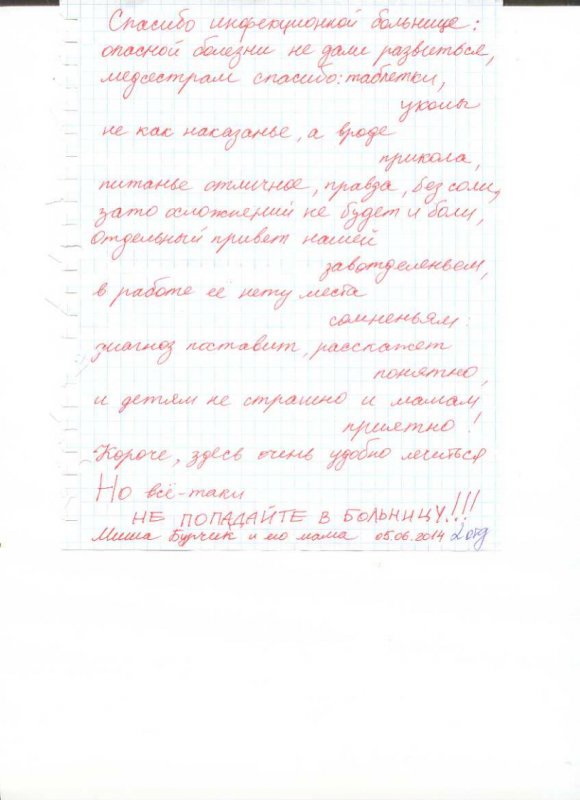 Спасибо инфекционной больнице:
опасной болезни не дали развиться,
медсестрам спасибо: таблетки,
уколы
не как наказанье, а вроде
прикола,
питанье отличное, правда, без соли,
зато осложнений не будет и боли,
Отдельный привет нашей
завотделеньем,
в работе её нету места
сомненьям:
диагноз поставит, расскажет
понятно,
и детям не страшно и мамам
приятно!
Короче, здесь очень удобно лечиться
Но всё-таки
НЕ ПОПАДАЙТЕ В БОЛЬНИЦУ!!!
Миша Бурчик и его мама 05.06.2014 2 отд